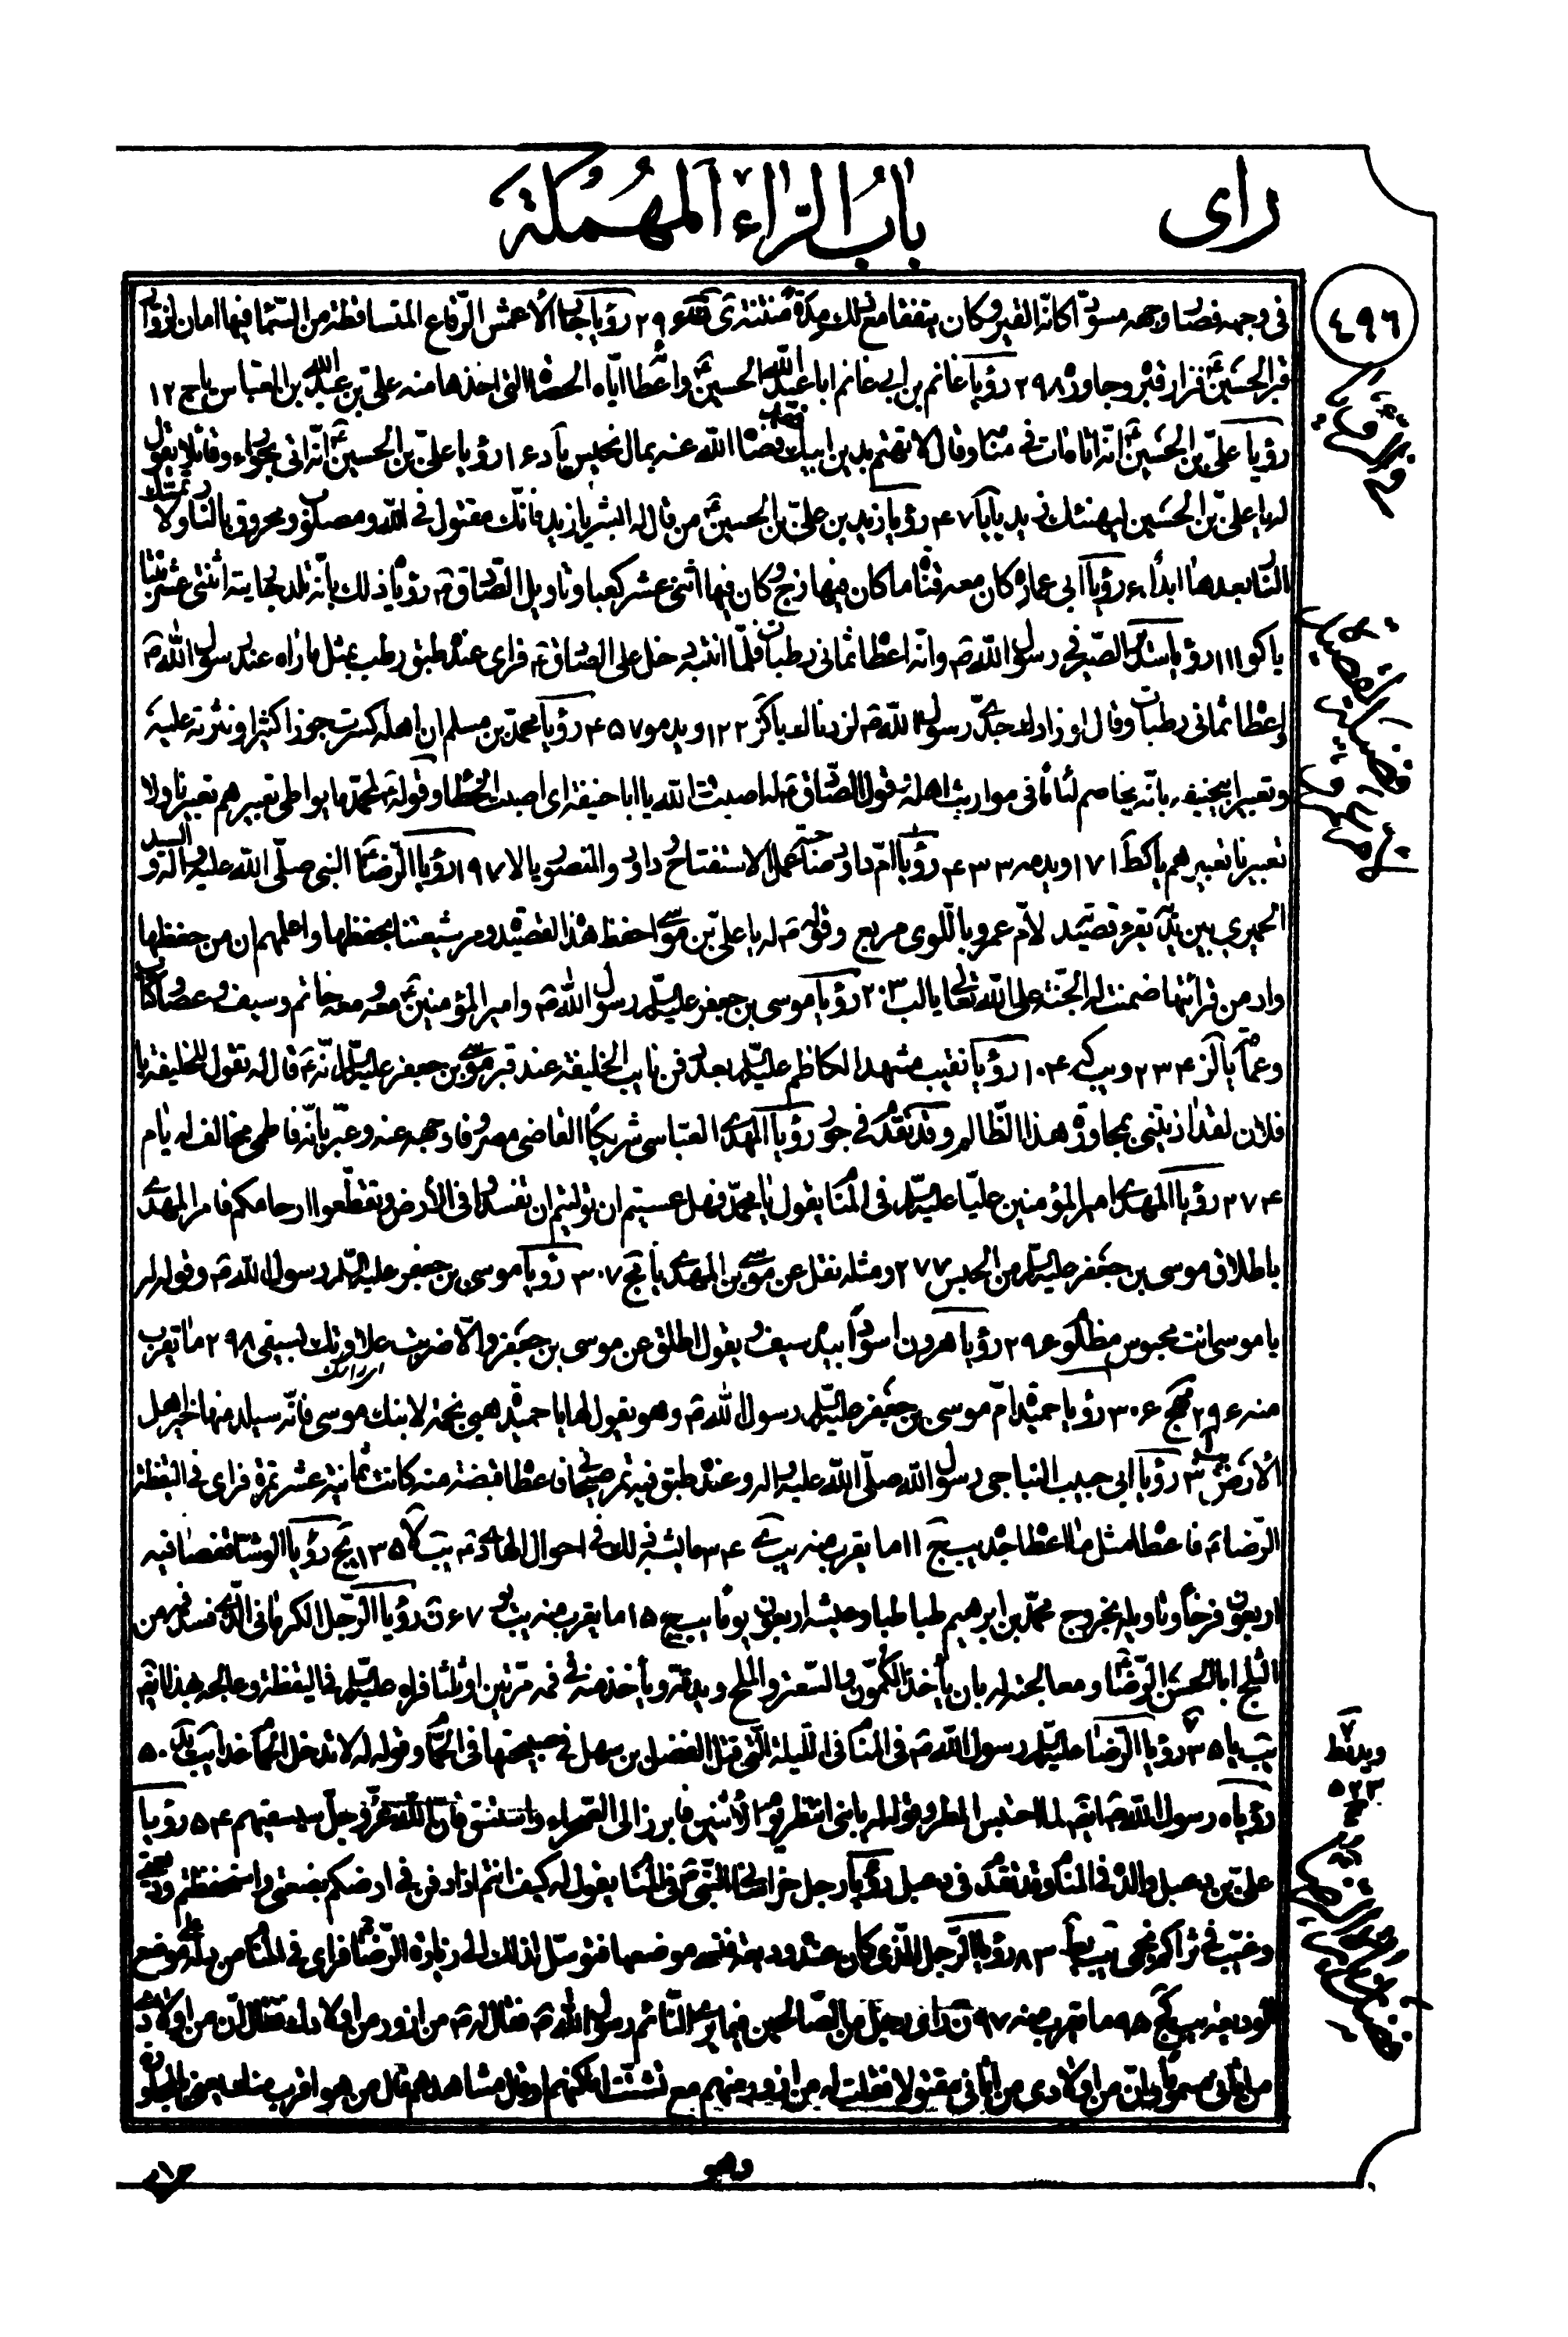 راى
باب الراء المهملة
٤٩٦
فى وجهه فصار وجهه مسودّا كانّه القير وكان يتفقا مع ذلك مدة منتنة رؤيا جار الأعمش الرّقاع المتساقطة من السّماء فيها امان لزوّار
قبر الحسين فزار قبره وجاوره ٢٩٨ رؤيا غانم بن ابى غانم ابا عبد الله الحسين واعطا ايّاه الحصاة التى اخذها منه علىّ بن عبد الله بن العباس يا ج ١٢
رؤيا علىّ بن الحسين انّه اتاه ات فى منامه وقال لا تهتم بدين ابيك فقد قضاه الله عنه بمال يا د ١٦ رؤيا علىّ بن الحسين انّه اتى بحوراء وقائل يقول
له يا علىّ بن الحسين ليهنئك زيد يا يا ٤٧ رؤيا زيد بن علىّ بن الحسين من قال له ابشر يا زيد فانّك مقتول فى الله ومصلوب ومحروق بالنار ولا تمسّك
النار بعدها ابدا رؤيا ابى عمارة كان معه قناة كان فيها زج وكان فيها اثنى عشر كعبا وتاويل الصّادق رؤياه ذلك بأنّه تلد جاريته اثنتى عشر بنتا
يا كو ١١١ رؤيا سدير الصّيرفى رسول الله وانّه اعطا ثمانى رطبات فلمّا انتبه دخل على الصّادق فراى عنده طبق رطب بمثل ما راه عند رسول الله
اعطا ثمانى رطبات وقال لو زادك جدّى رسول الله لزدناك يا كز ١٢٢ و يد مو ٤٥٧ رؤيا محمّد بن مسلم ان اهله كسرت جوزا كثيرا ونثرته عليه
وتعبير ابيحنيفه بانّه يخاصم لئاما فى مواريث اهله قول الصّادق له اصبت والله يا ابا حنيفة اى اصبت الخطا وقوله لمحمّد ما يواطى تعبيرهم تعبيرنا ولا
تعبيرنا تعبيرهم يا كط ١٧١ و يد مه ٤٣٣ رؤيا امّ داود صاحبة عمل الاستفتاح داود والمنصور يا لا ١٩٧ رؤيا الرّضا النبى صلّى الله عليه واله والسيد
الحميرى بين يديه يقرء قصيدة لامّ عمرو باللّوى مربع وقوله له يا علىّ بن موسى احفظ هذه القصيدة ومر شيعتنا بحفظها واعلمهم ان من حفظها
وادمن قرائتها ضمنت له الجنّة على الله تعالى يا لب ٢٠٣ رؤيا موسى بن جعفر عليه السلم رسول الله وامير المؤمنين معه ومعه خاتم وسيف وعصا وكتاب
وعمامة يا لز ٢٣٤ و يب كه ١٠٤ رؤيا نقيب مشهد الكاظم عليه السلم بعد دفن نايب الخليفة عند قبر موسى بن جعفر عليه السلم انّه قال له تقول للخليفة يا
فلان لقد اذيتنى بمجاورة هذا الظّالم وقد تقدّم فى جور رؤيا المهدى العبّاسى شريكا القاضى مصروفا وجهه عنه وعبّر بانّه فاطمى مخالف له يا م
٢٧٤ رؤيا المهدى امير المؤمنين عليّا عليه السلم فى المنام يقول يا محمّد فهل عسيتم ان تولّيتم ان تفسدوا فى الأرض وتقطّعوا ارحامكم فامر المهدى
باطلاق موسى بن جعفر عليه السلم من الحبس ٢٧٧ ومثله نقل عن موسى بن المهدى يا مج ٣٠٧ رؤيا موسى بن جعفر عليه السلم رسول الله وقوله له
يا موسى انت محبوس مظلوم ٢٩٦ رؤيا هرون اسودا بيده سيف يقول اطلق عن موسى بن جعفر والّا ضربت علاوتك بسيفى ٢٩٨ ما يقرب
منه ٢٩٦ مج ٣٠٦ رؤيا حميدة امّ موسى بن جعفر عليه السلم رسول الله وهو يقول لها يا حميدة هبى نجمة لابنك موسى فانّه سيلد منها خير اهل
الأرض رؤيا ابى حبيب النباجى رسول الله صلّى الله عليه واله وعنده طبق فيه تمر صيحانى فاعطا قبضة منه كانت ثمانية عشر تمرة فراى فى اليقظة
الرّضا فاعطا مثل ما اعطا جده يب ج ١١ ما يقرب منه ٣٤ ما يشبه ذلك فى احوال الهادى يب لا ١٣٥ رؤيا الوشّا قفصا فيه
اربعون فرخا وتاويله بخروج محمّد بن ابرهيم طباطبا وعيشه اربعون يوما يب ج ١٥ ما يقرب منه يب يو ٦٧ رؤيا الرّجل الكرمانى الّذى فسد فمه من
الثّلج ابا الحسن الرّضا ومعالجته له بان يأخذ الكمّون والسّعتر والملح ويدقّه ويأخذ منه فى فمه مرّتين او ثلثا فراه عليه السلم فى اليقظة وعالجه بهذا ايضا
يب يا ٣٥ رؤيا الرّضا عليه السلم رسول الله فى المنام فى اللّيلة الّتى قتل الفضل بن سهل فى صبيحتها فى الحمّام وقوله له لا تدخل الحمّام غدا يب يد ٥٠
رؤياه رسول الله ايضا لمّا احتبس المطر وقوله له يا بنى انتظر يوم الأثنين فابرز الى الصّحراء واستسق فانّ الله عزّ وجلّ سيسقيهم ٥٤ رؤيا
علىّ بن دعبل والده فى المنام وقد تقدّم فى دعبل رؤيا رجل خراسانى النّبى فى المنام يقول له كيف انتم اذا دفن فى ارضكم بضعتى واستحفظتم وديعتى
وغيّب فى ثراكم نجمى ٨٣ رؤيا الرّجل الّذى كان عنده وديعة فنسى موضعها فتوسّل لذلك الى زيارة الرّضا فراى فى المنام من دلّه على موضع
الوديعة يب كج ٩٥ ما يقرب منه ٩٧ راى رجل من الصّالحين فيما يرى النّائم رسول الله فقال له من ازور من اولادك فقال انّ من اولادى
من اتانى مسموما وانّ من اولادى من اتانى مقتولا فقلت له من ازور منهم مع تشتّت اماكنهم او قال مشاهدهم قال من هو اقرب منك
ويد نط
٥٢٣
وهو